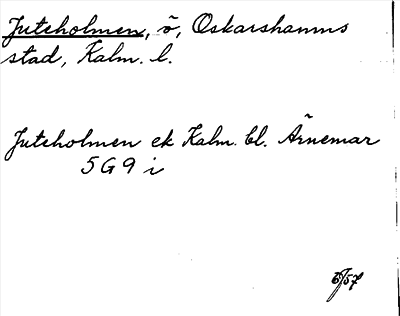 Juteholmen, ö, Oskarshamns
stad, Kalm. l.
Juteholmen ek Kalm. bl. Ärnemar
5G9 i